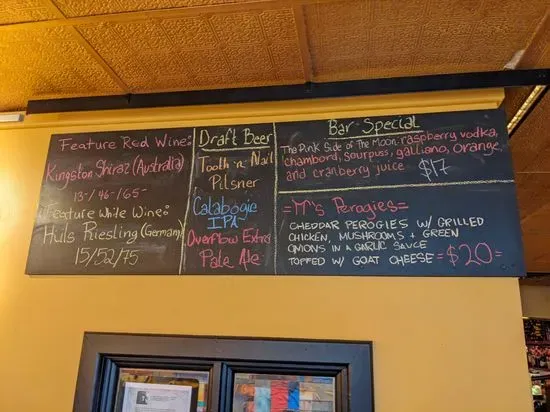 Feature Red Wine:
Kingston Shiraz (Australia)
13-/46-/65-
Feature White Wine:
Huls Riesling (Germany)
15/52/75
Draft Beer
Tooth 'n' Nail
Pilsner
Calabogie
IPA
Overflow Extra
Pale Ale
Bar Special
The Pink Side of The Moon raspberry vodka,
chambord, sourpuss, galliano, orange,
and cranberry juice $17
=M's Perogies=
CHEDDAR PEROGIES W/ GRILLED
CHICKEN, MUSHROOMS + GREEN
ONIONS IN A GARLIC SAUCE
TOPPED W/ GOAT CHEESE =$20=